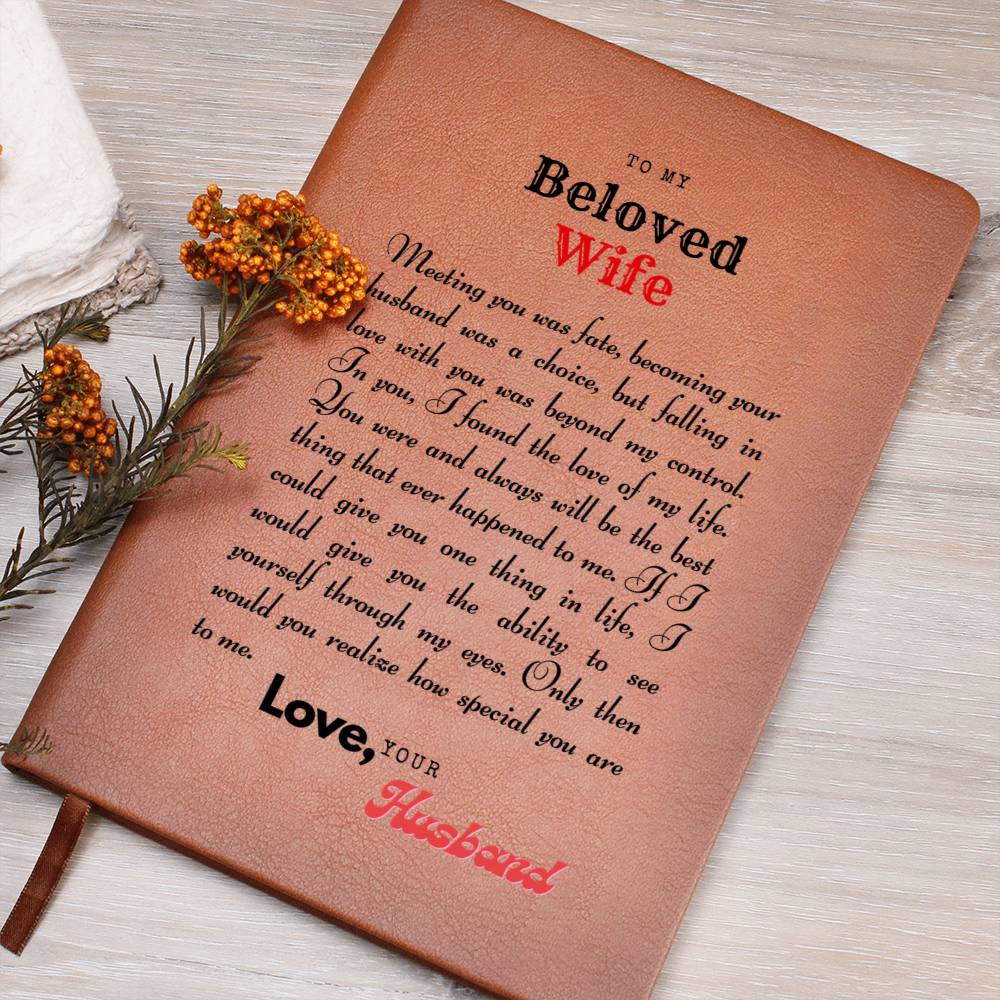 TO MY
Beloved
Wife
Meeting you was fate, becoming your
husband was a choice, but falling in
love with you was beyond my control.
In you, I found the love of my life.
You were and always will be the best
thing that ever happened to me. If I
could give you one thing in life, I
would give you the ability to see
yourself through my eyes. Only then
would you realize how special you are
to me.
Love, YOUR
Husband